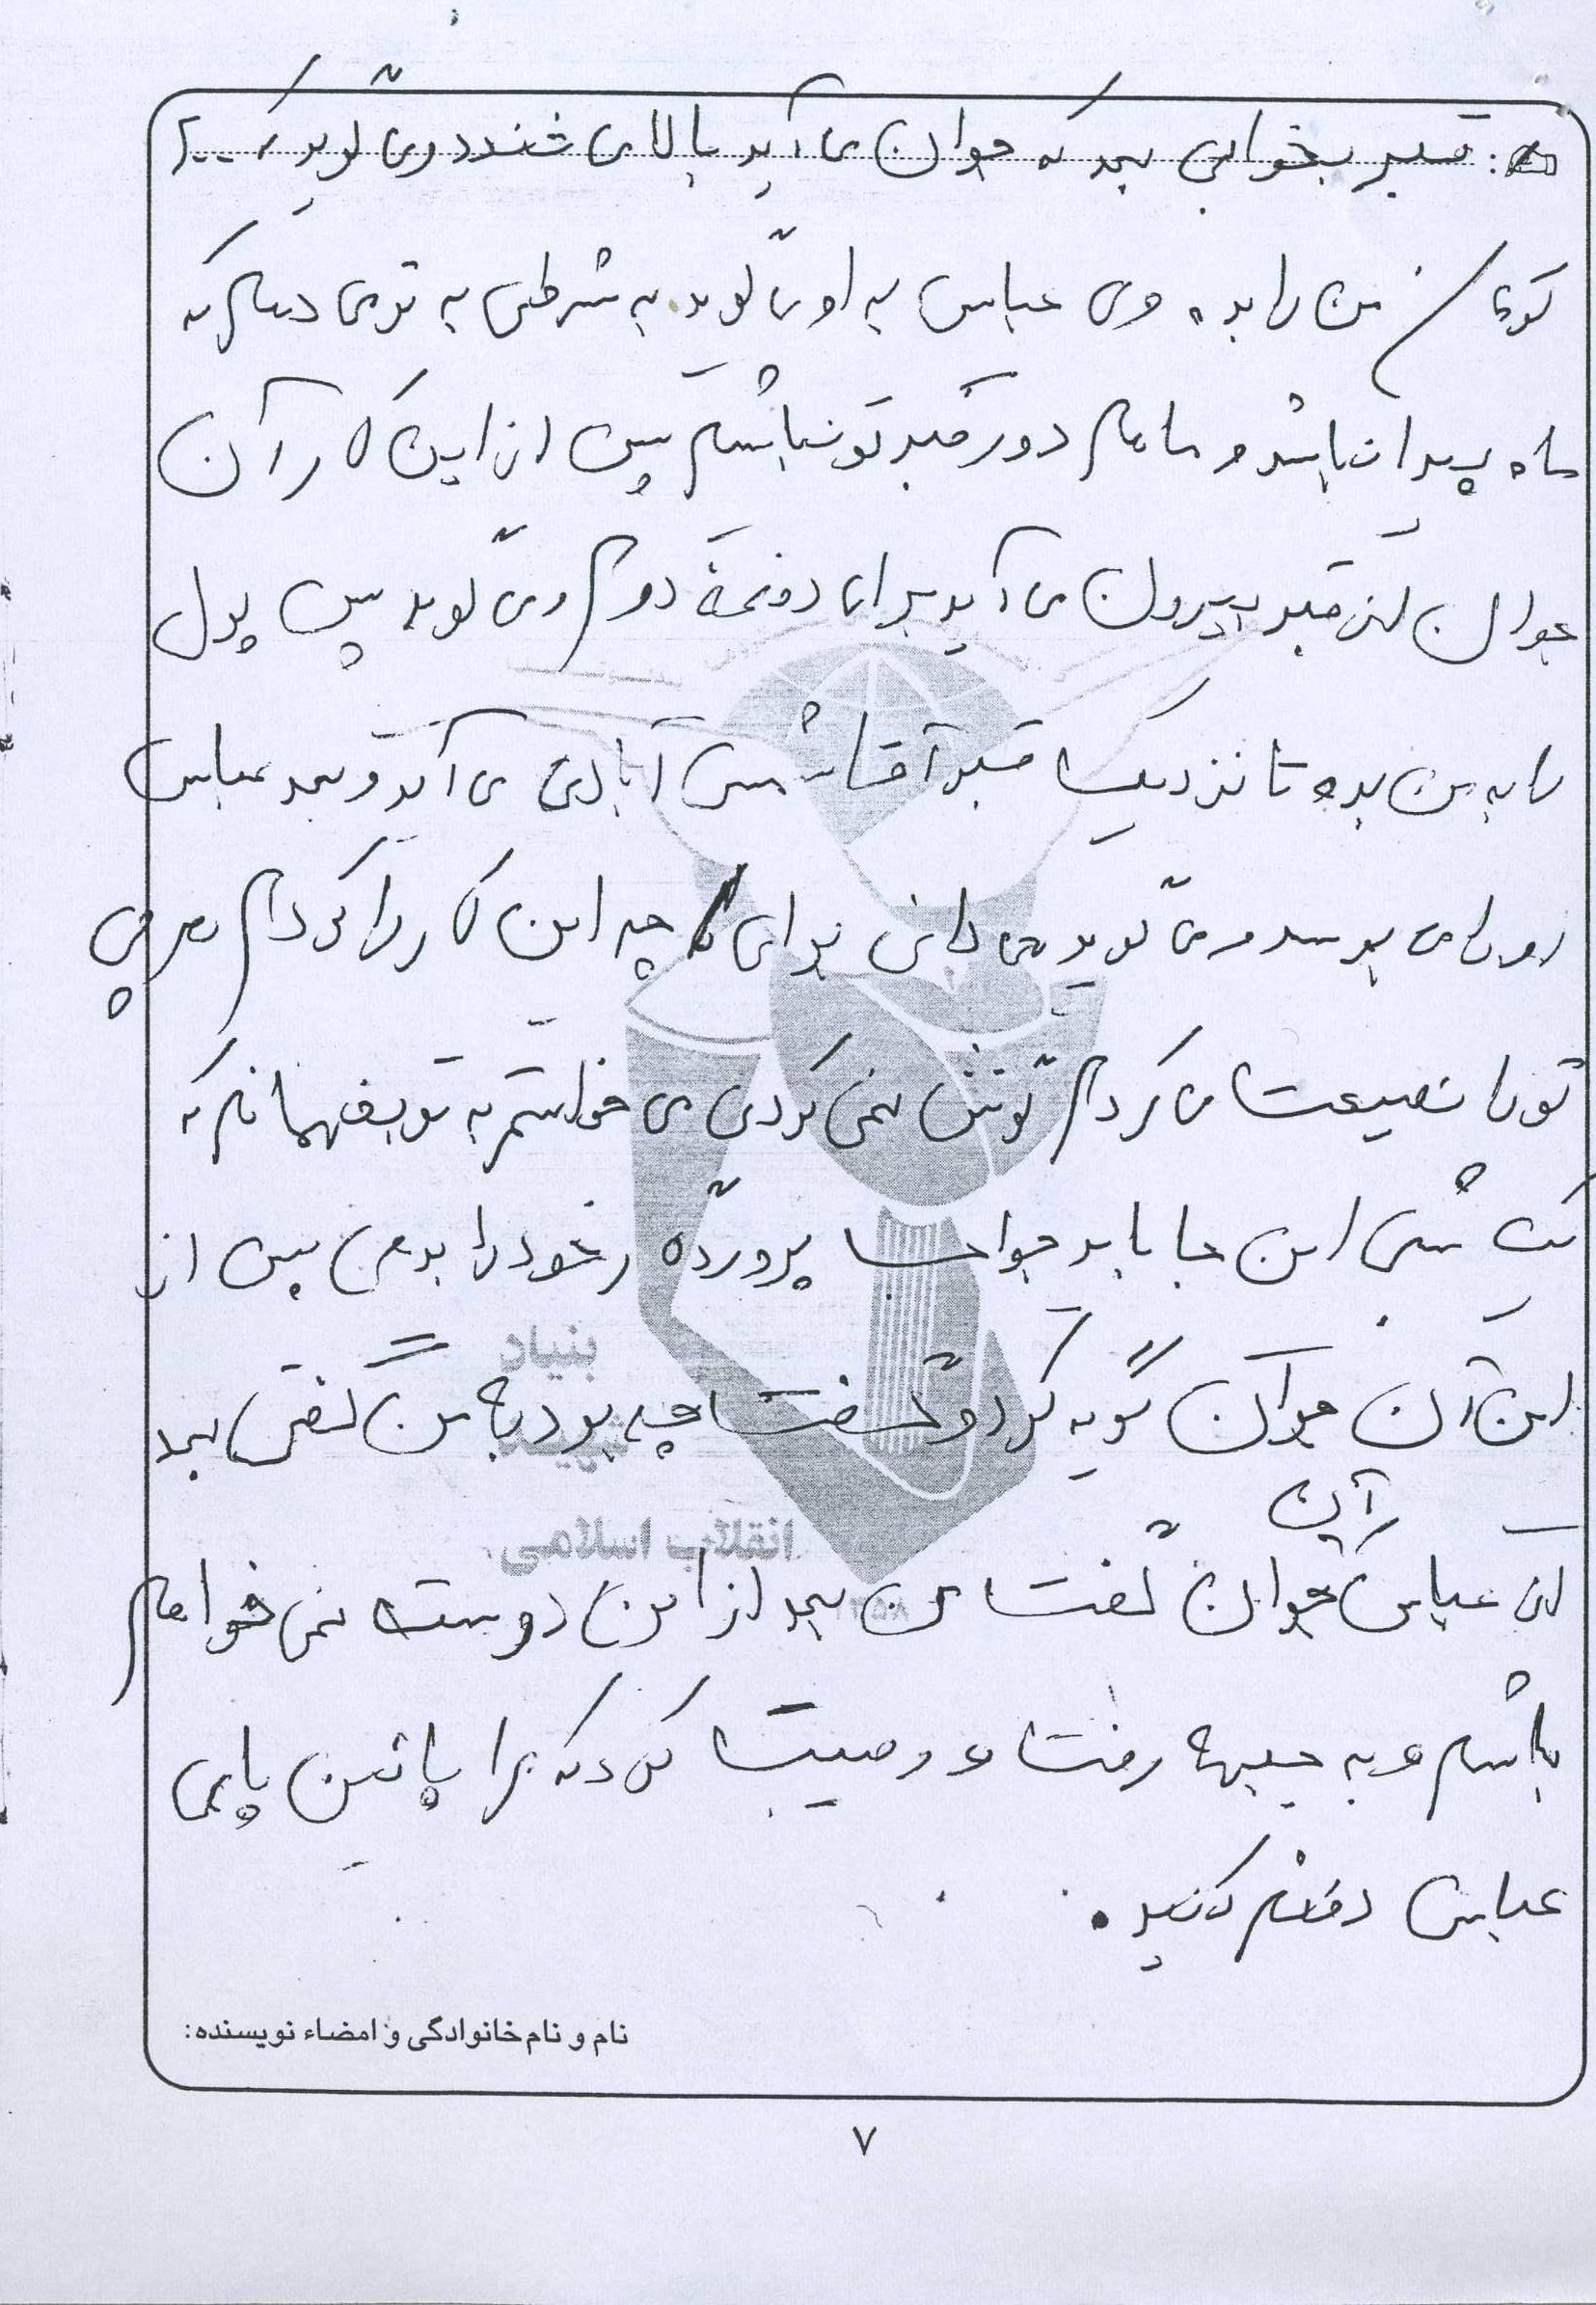 قبر بخوابی بعد که جوان می آید بالای خندد و می گوید که ۲۰۰
تومان من را بده ولی عباس به او می گوید به شرطی به تو می دهم که
ماه پیدا نباشد و ما هم دور قبر تو نباشیم پس از این کار آن
جوان از قبر بیرون می آید برای دفعهٔ دوم و می گوید پس پول
را به من بده تا نزدیک قبر آقا شمس آبادی می آید و بعد عباس
او را می بوسد و می گوید می دانی برای چه این کار را کردم هر چی
تو را نصیحت می کردم گوش نمی کردی می خواستم به تو بفهمانم که
یک شبی این جا باید جواب پرورده خود را بدهی پس از
این آن جوان گریه کرد و گفت چه بود به من گفتی بعد
از آن عباس جوان گفت من بعد از این دوست نمی خواهم
باشم و به جبهه رفت و وصیت کرد که مرا پائین پای
عباس دفنم کنید.
بنیاد
شهید
انقلاب اسلامی
۱۳۵۸
نام و نام خانوادگی و امضاء نویسنده:
۷